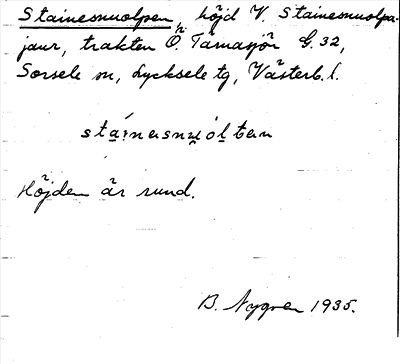 Stainesnuolpen, höjd V. Stainesnuolpa-
jaur, trakten Ö. Tärnasjön G. 32,
Sorsele sn, Lycksele tg, Västerb. l.
Höjden är rund.
B. Nygren 1935.